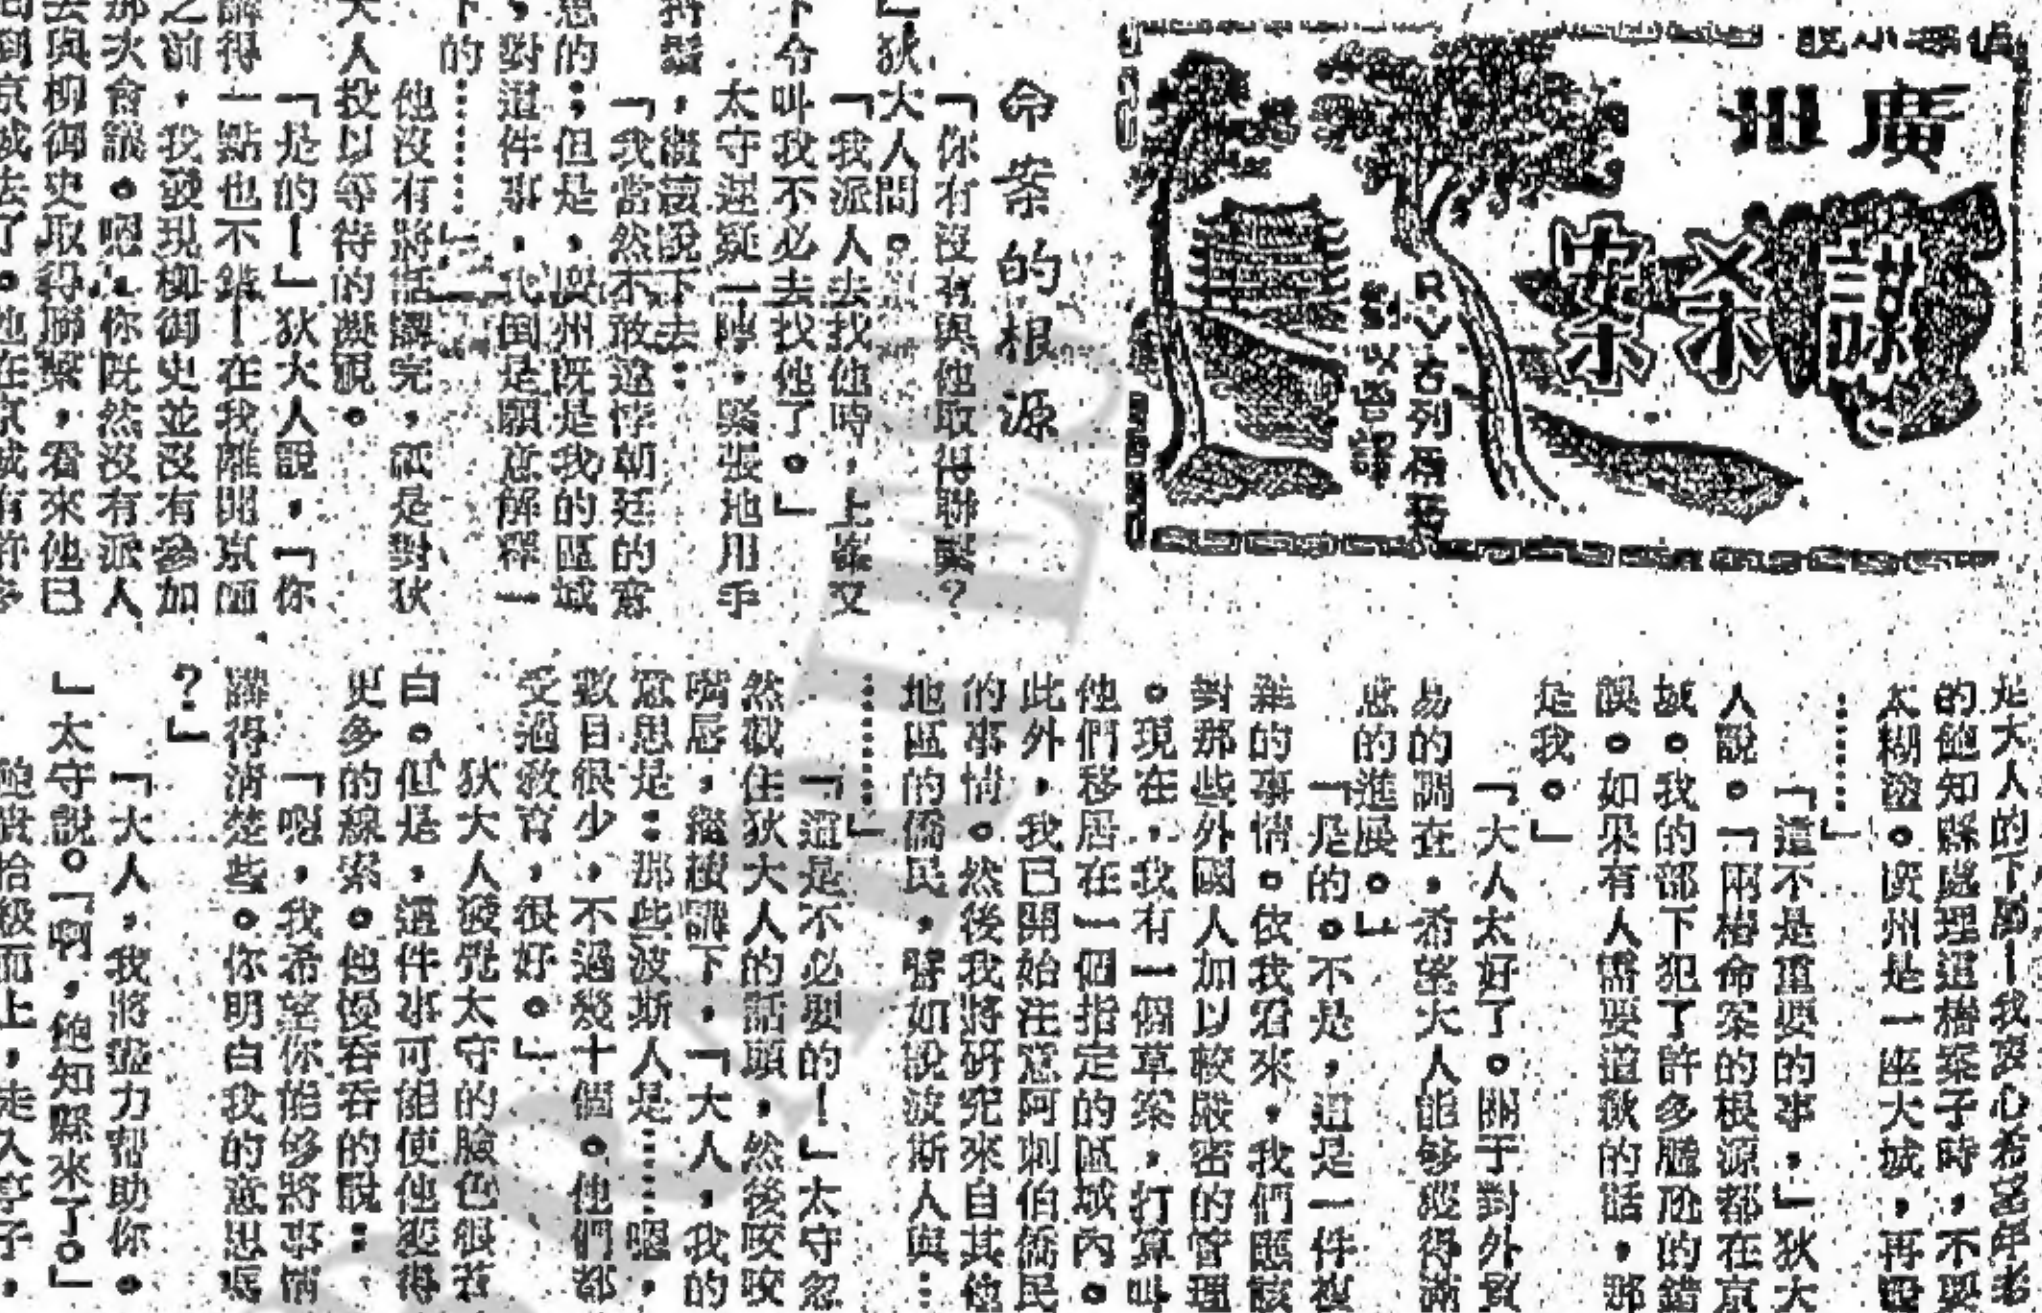 廣州
謀杀案
命案的根源
「你有沒有與他取得聯繫？
」狄大人問。
「我派人去找他時，上峯又
下令叫我不必去找他了。」
太守遲疑一
，緊張地用手
，繼續說下去：
「我當然不敢違悖朝廷的意
思的；但是，廣州既是我的區域
，對這件事，我倒是願意解釋一
下的……」
他沒有將話講完，祇是對狄
大人投以等待的凝視。
「是的！」狄大人說，「你
講得一點也不錯！在我離開京師
之前，我發現柳御史並沒有參加
那次會議。嗯，你既然沒有派人
去與柳御史取得聯繫，看來他已
京城去了。他在京城有許多
是大人的下屬！我衷心希望年老
的鮑知縣處理這樁案子時，不要
太糊塗。廣州是一座大城，再
……」
「這不是重要的事，」狄大
人說。「兩樁命案的根源都在京
城。我的部下犯了許多尷尬的錯
誤。如果有人需要道歉的話，那
是我。」
「大人太好了。關于對外貿
易的調査，希望大人能够獲得滿
意的進展。」
「是的。不是，這是一件複
雜的事情。依我看來，我們應該
對那些外國人加以較嚴密的管理
。現在，我有一個草案，打算叫
他們移居在一個指定的區域內。
此外，我已開始注意阿剌伯僑民
的事情。然後我將研究來自其他
地區的僑民，譬如說波斯人與…
……」
「這是不必要的！」太守忽
然截住狄大人的話頭，然後咬咬
嘴唇，繼續講下，「大人，我的
意思是：那些波斯人是……嗯，
數目很少，不過幾十個。他們都
受過敎育，很好。」
狄大人發覺太守的臉色很蒼
白。但是，這件事可能使他獲得
更多的線索。他慢吞吞的說：
「嗯，我希望你能够將事情
講得淸楚些。你明白我的意思嗎
？」
「大人，我將盡力幫助你。
」太守說。「啊，鮑知縣來了。」
鮑
拾級而上，走入亭子，